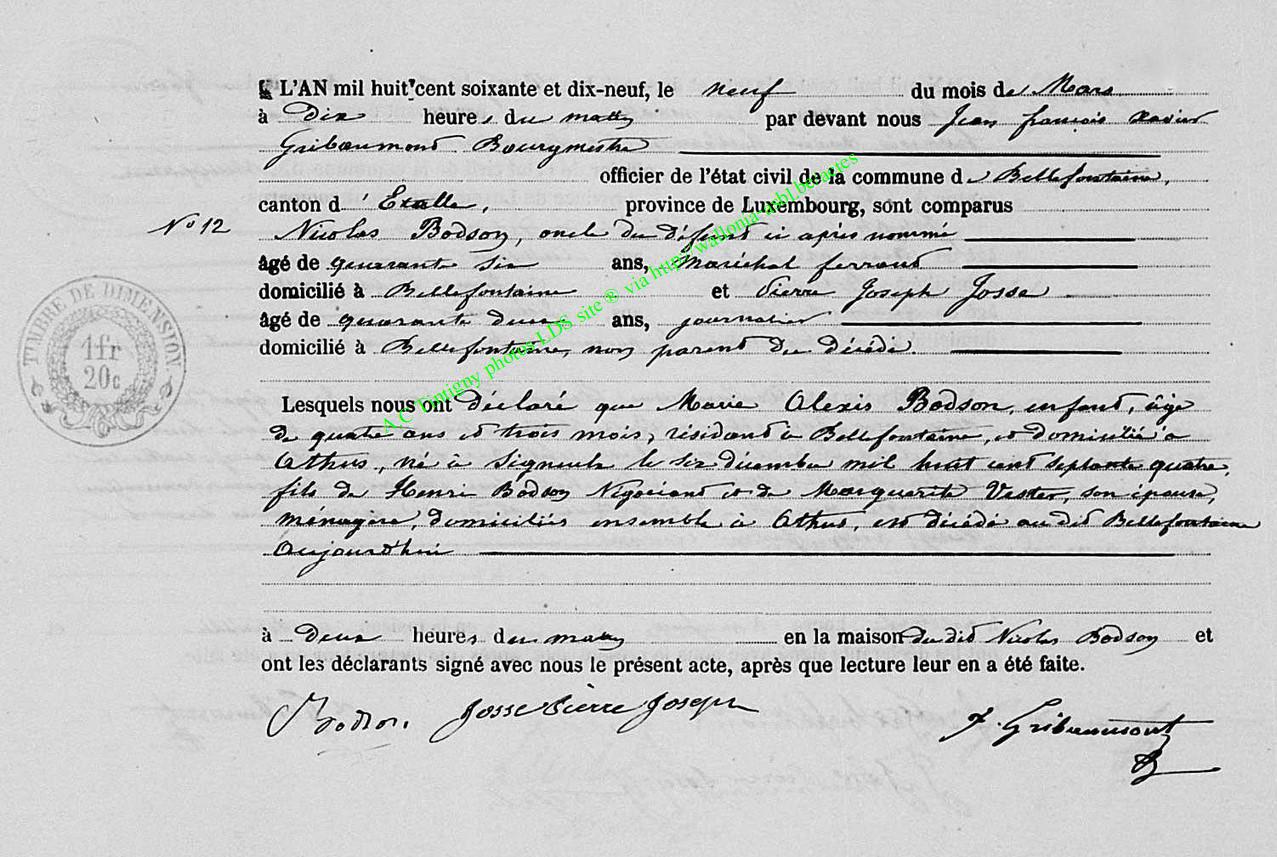 L'AN mil huit cent soixante et dix-neuf, le neuf du mois de Mars
à Dix heures du matin par devant nous Jean françois xavier
Gribaumont Bourgmestre
officier de l'état civil de la commune de Bellefontaine,
canton d'Etalle, province de Luxembourg, sont comparus
N° 12
Nicolas Bodson, oncle du défunt ci après nommé
âgé de quarante six ans, Maréchal ferrant
domicilié à Bellefontaine et Pierre Joseph Josse
âgé de quarante deux ans, journalier
domicilié à Bellefontaine, non parent du décédé.
TIMBRE DE DIMENSION
1fr
20c
Lesquels nous ont déclaré que Marie Alexis Bodson, enfant, âgé
de quatre ans et trois mois, résidant à Bellefontaine, et domicilié à
Athus, né à Signeulx le six décembre mil huit cent septante quatre,
fils de Henri Bodson Négociant et de Marguerite Vester, son épouse,
ménagère, domiciliés ensemble à Athus, est décédé au dit Bellefontaine
Aujourd'hui
à Deux heures du matin en la maison du dit Nicolas Bodson et
ont les déclarants signé avec nous le présent acte, après que lecture leur en a été faite.
Bodson. Josse Pierre Joseph
F. Gribaumont
A.C Tintigny photos LDS site ® via http://wallonia-asbl.be/actes